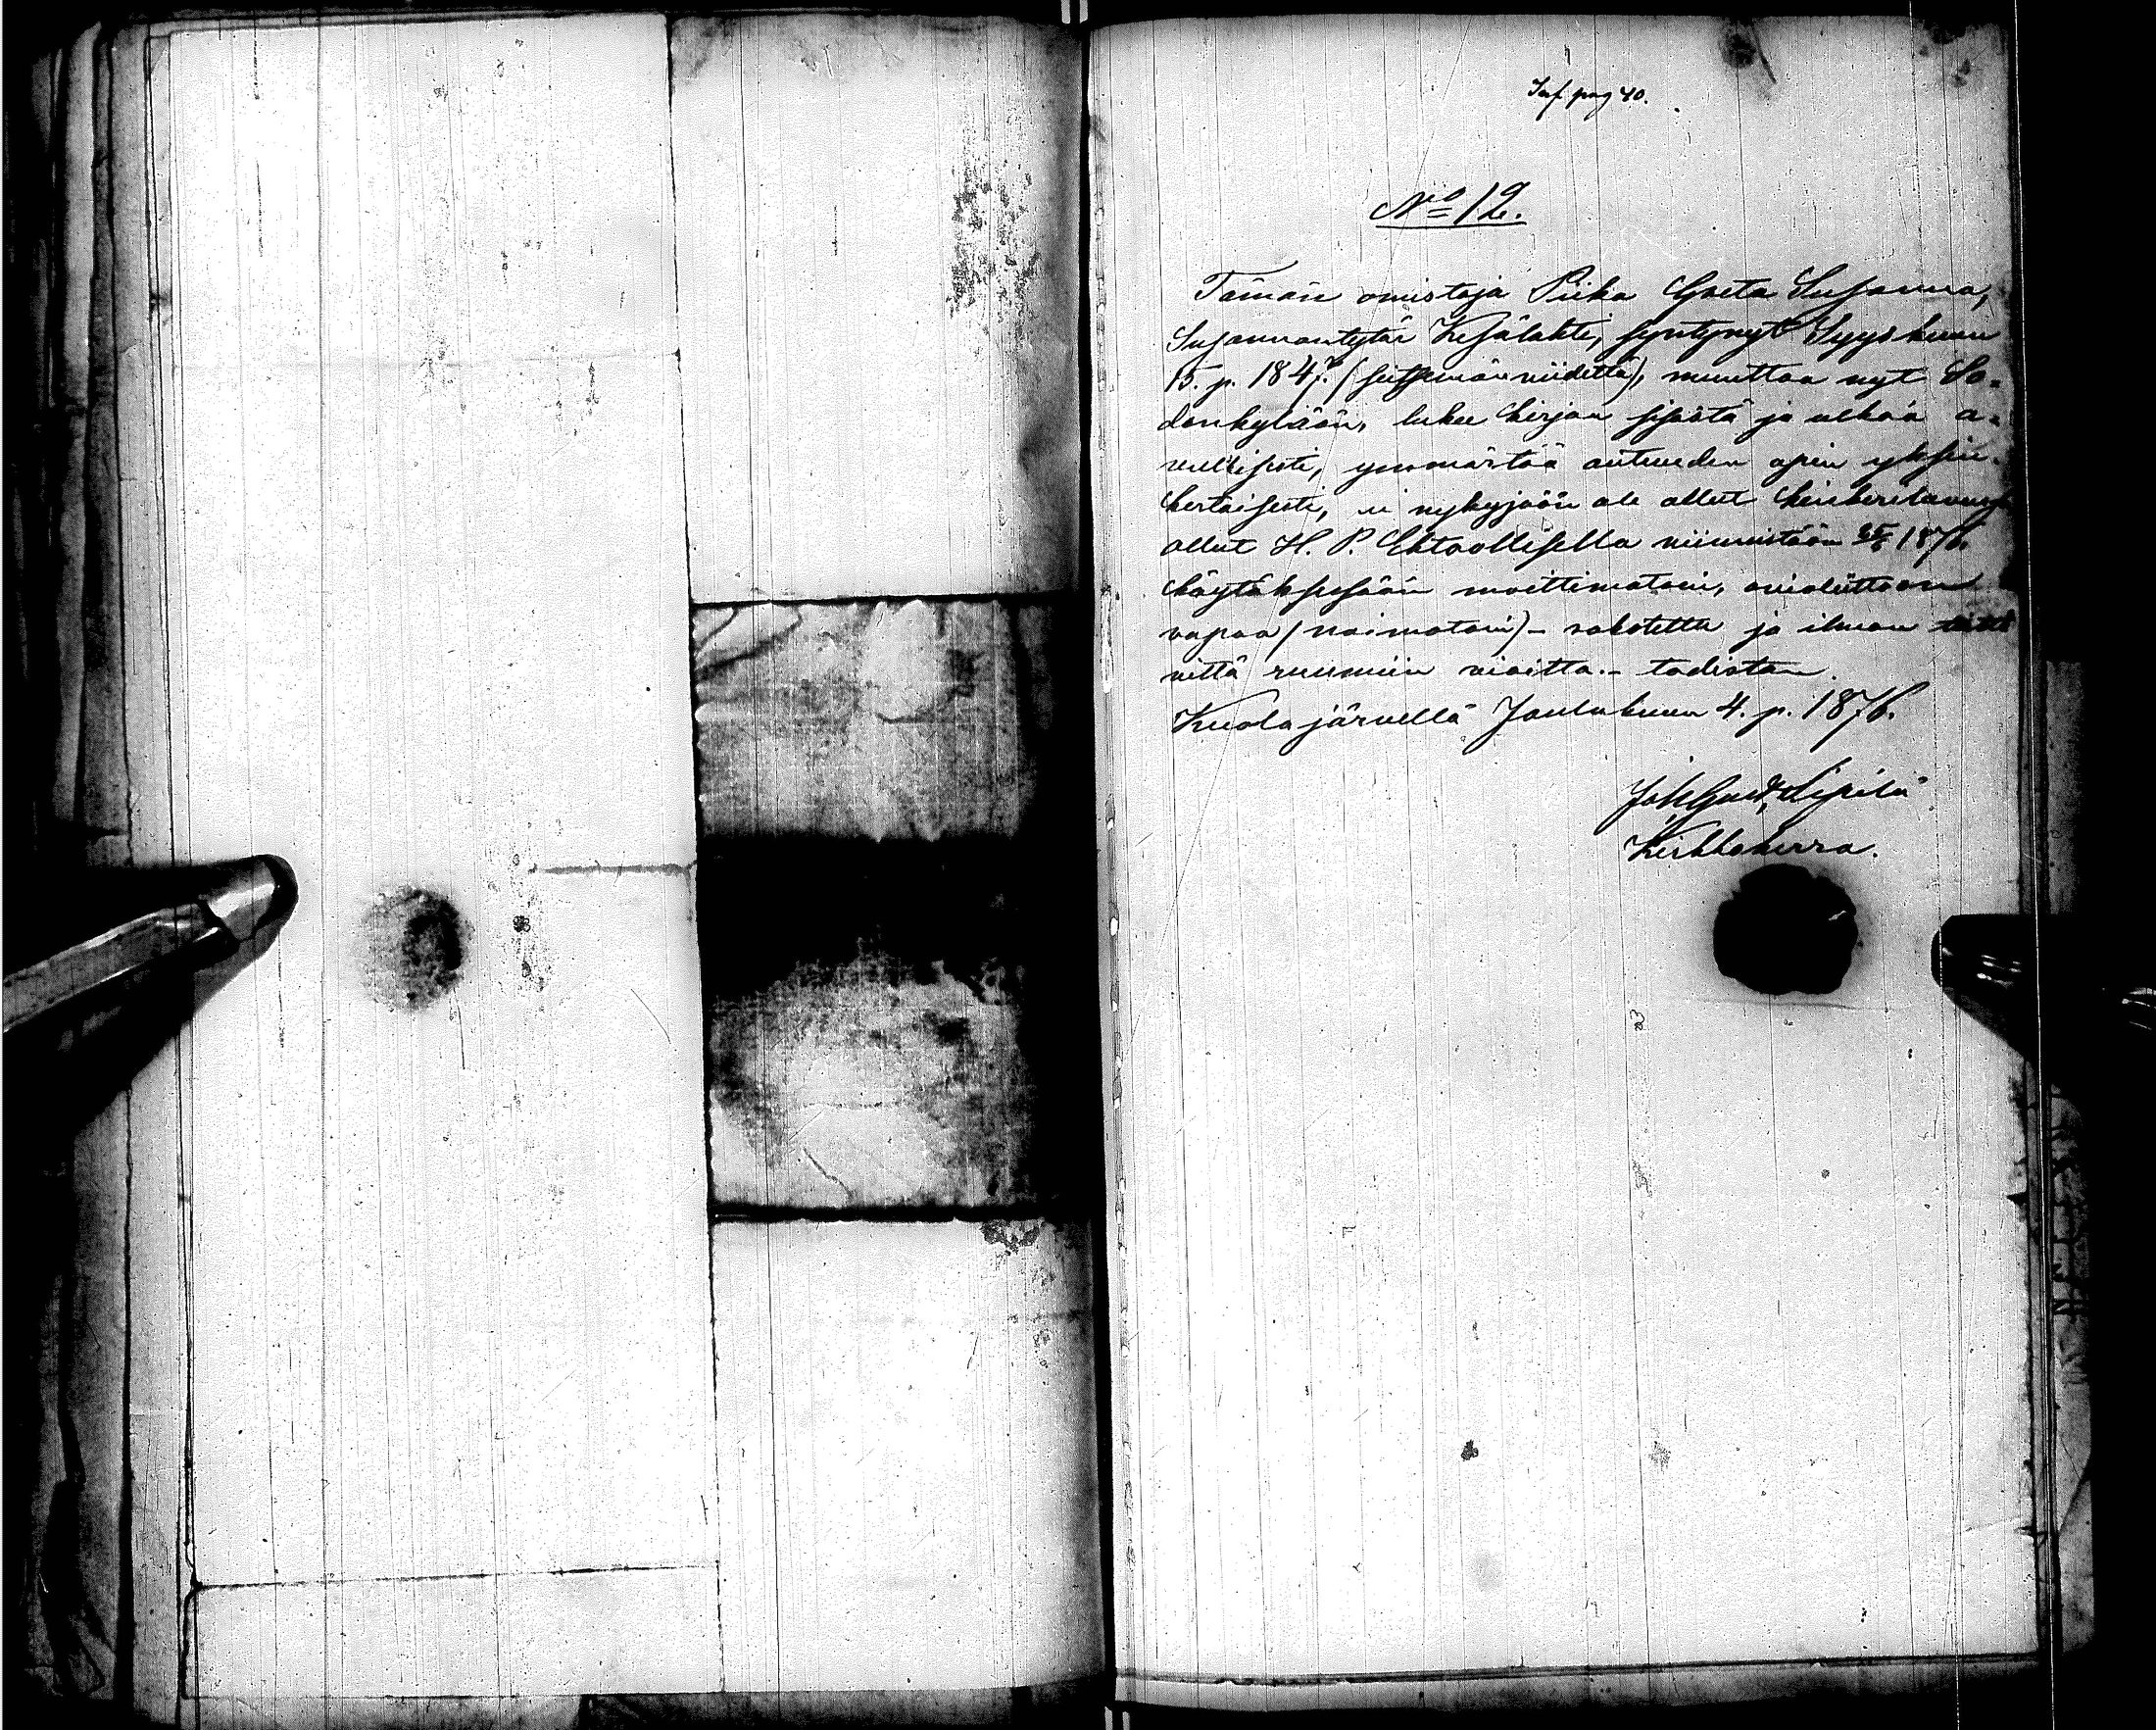 Inf. pag 40.
No 12.
Tämän omistaja Piika Greta Susanna,
Susannantytär Kesälahti, syntynyt Syyskuun
15. p. 1847. (seitsemän viidettä), muuttaa nyt So-
dankylään, lukee kirjan sisästä ja ulkoa a-
vullisesti, ymmärtää autuuden opin yksin-
kertaisesti, ei nykyjään ole ollut
ollut H. P. Ehtoollisella viimeistään 1876.
käytöksessään moittimatoin, avioliittoon
vapaa (naimatoin) - rokotettu ja ilman
vittä ruumiin vioitta. - todistan.
Kuolajärvellä Joulukuun 4. p. 1876.
Joh Gust. Sipilä
Kirkkoherra.